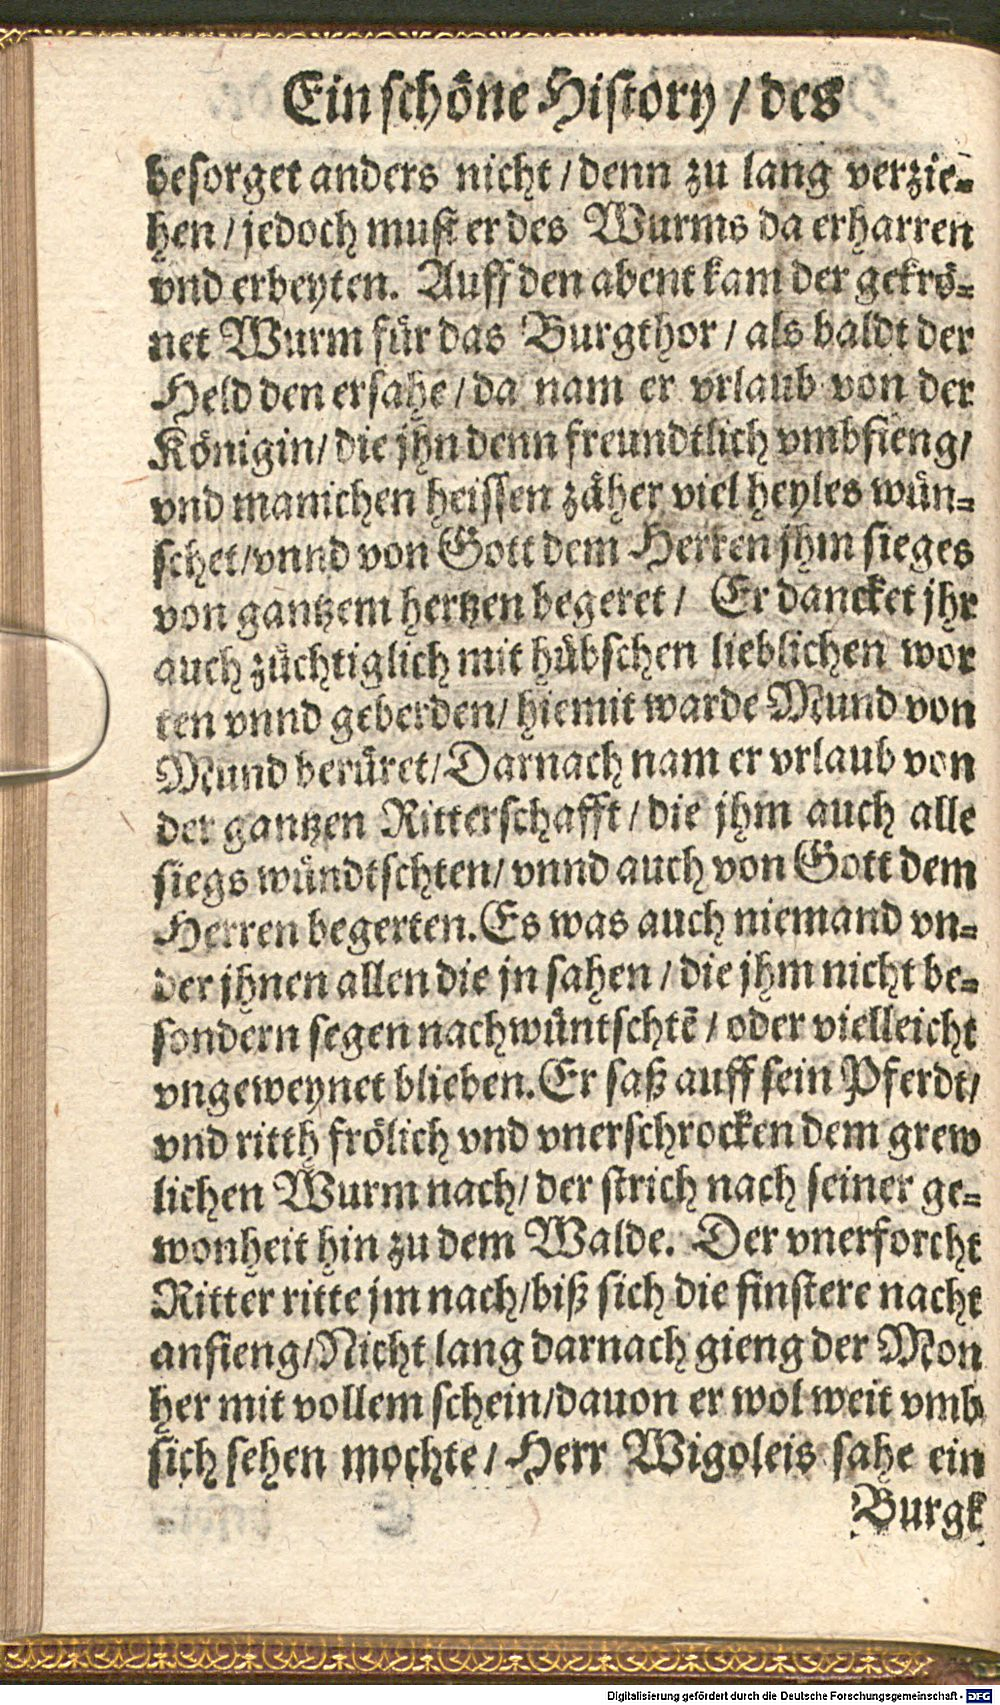 Ein schöne History / des
besorget anders nicht / denn zu lang verzie-
hen / jedoch must er des Wurms da erharren
vnd erbeyten. Auff den abent kam der gekrö-
net Wurm für das Burgthor / als baldt der
Held den ersahe / da nam er vrlaub von der
Königin / die jhn denn freundtlich vmbfieng /
vnd manichen heissen zäher viel heyles wün-
schet / vnnd von Gott dem Herren jhm sieges
von gantzem hertzen begeret / Er dancket jhr
auch züchtiglich mit hübschen lieblichen wor
ten vnnd geberden / hiemit warde Mund von
Mund berüret / Darnach nam er vrlaub von
der gantzen Ritterschafft / die jhm auch alle
siegs wündtschten / vnnd auch von Gott dem
Herren begerten. Es was auch niemand vn-
der jhnen allen die jn sahen / die jhm nicht be-
sondern segen nachwüntschtē / oder vielleicht
vngeweynet blieben. Er saß auff sein Pferdt /
vnd ritth frölich vnd vnerschrocken dem grew
lichen Wurm nach / der strich nach seiner ge-
wonheit hin zu dem Walde. Der vnerforcht
Ritter ritte jm nach / biß sich die finstere nacht
anfieng / Nicht lang darnach gieng der Mon
her mit vollem schein / dauon er wol weit vmb
sich sehen mochte / Herr Wigoleis sahe ein
Burgk
Digitalisierung gefördert durch die Deutsche Forschungsgemeinschaft - DFG